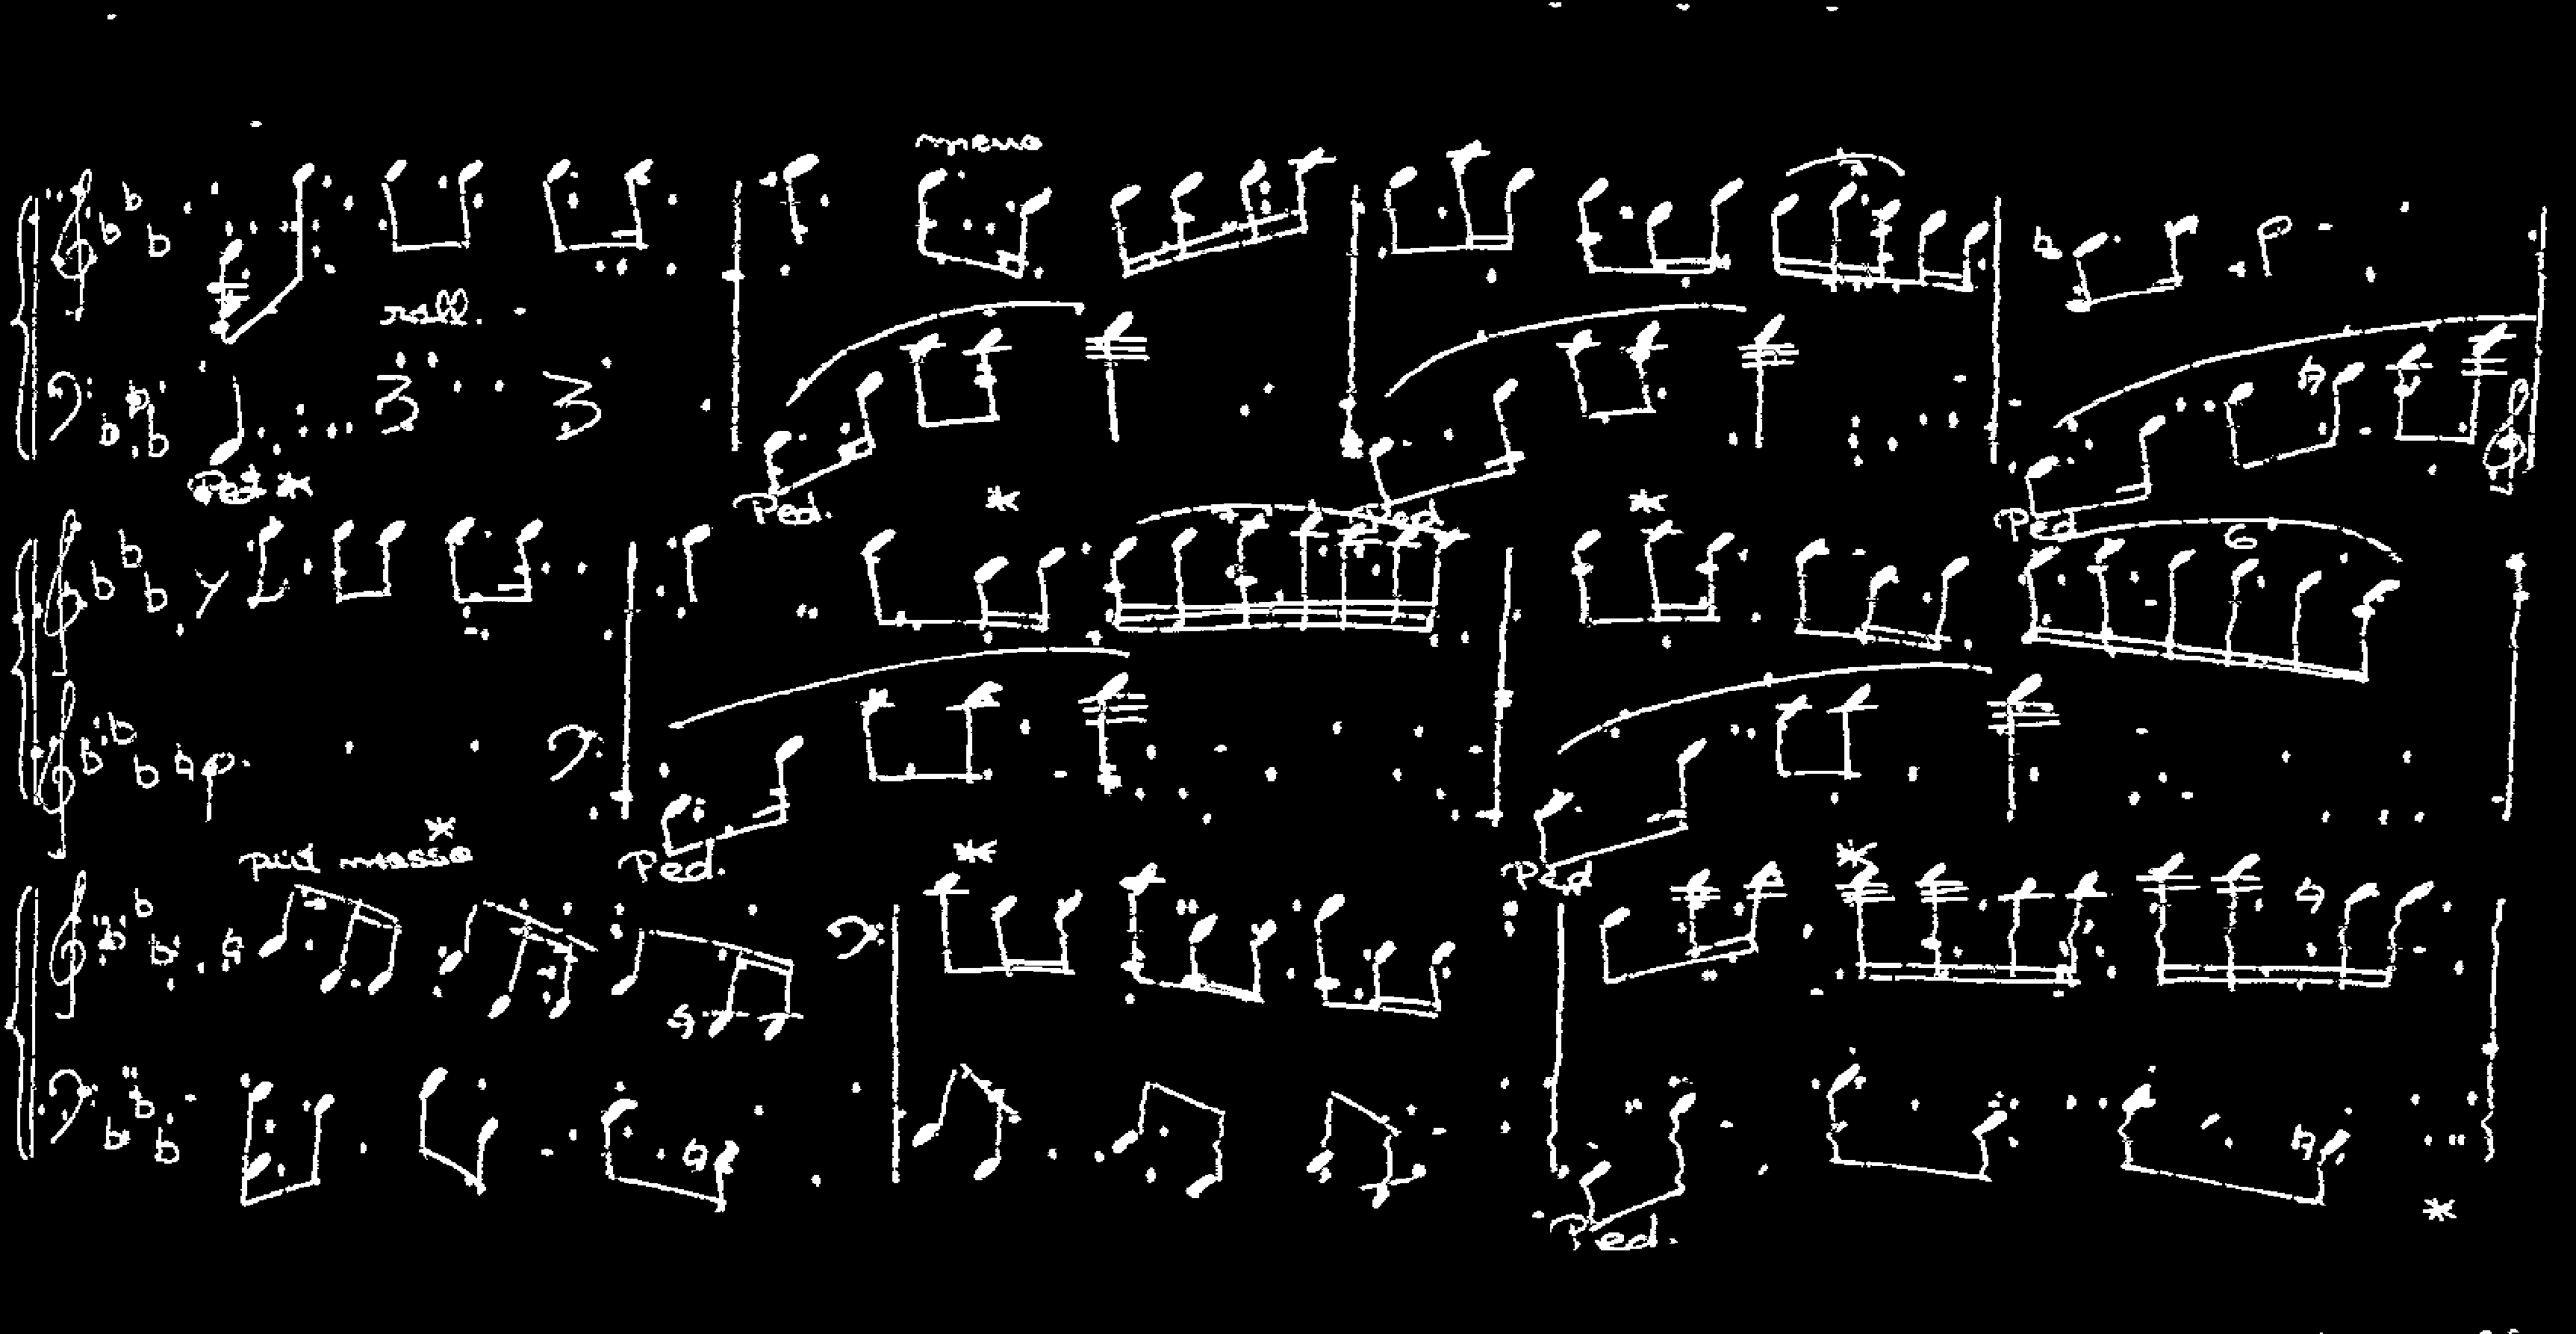 meno
rall.
Ped
Ped.
Ped
Ped
6
più mosso
Ped.
Ped
Ped.